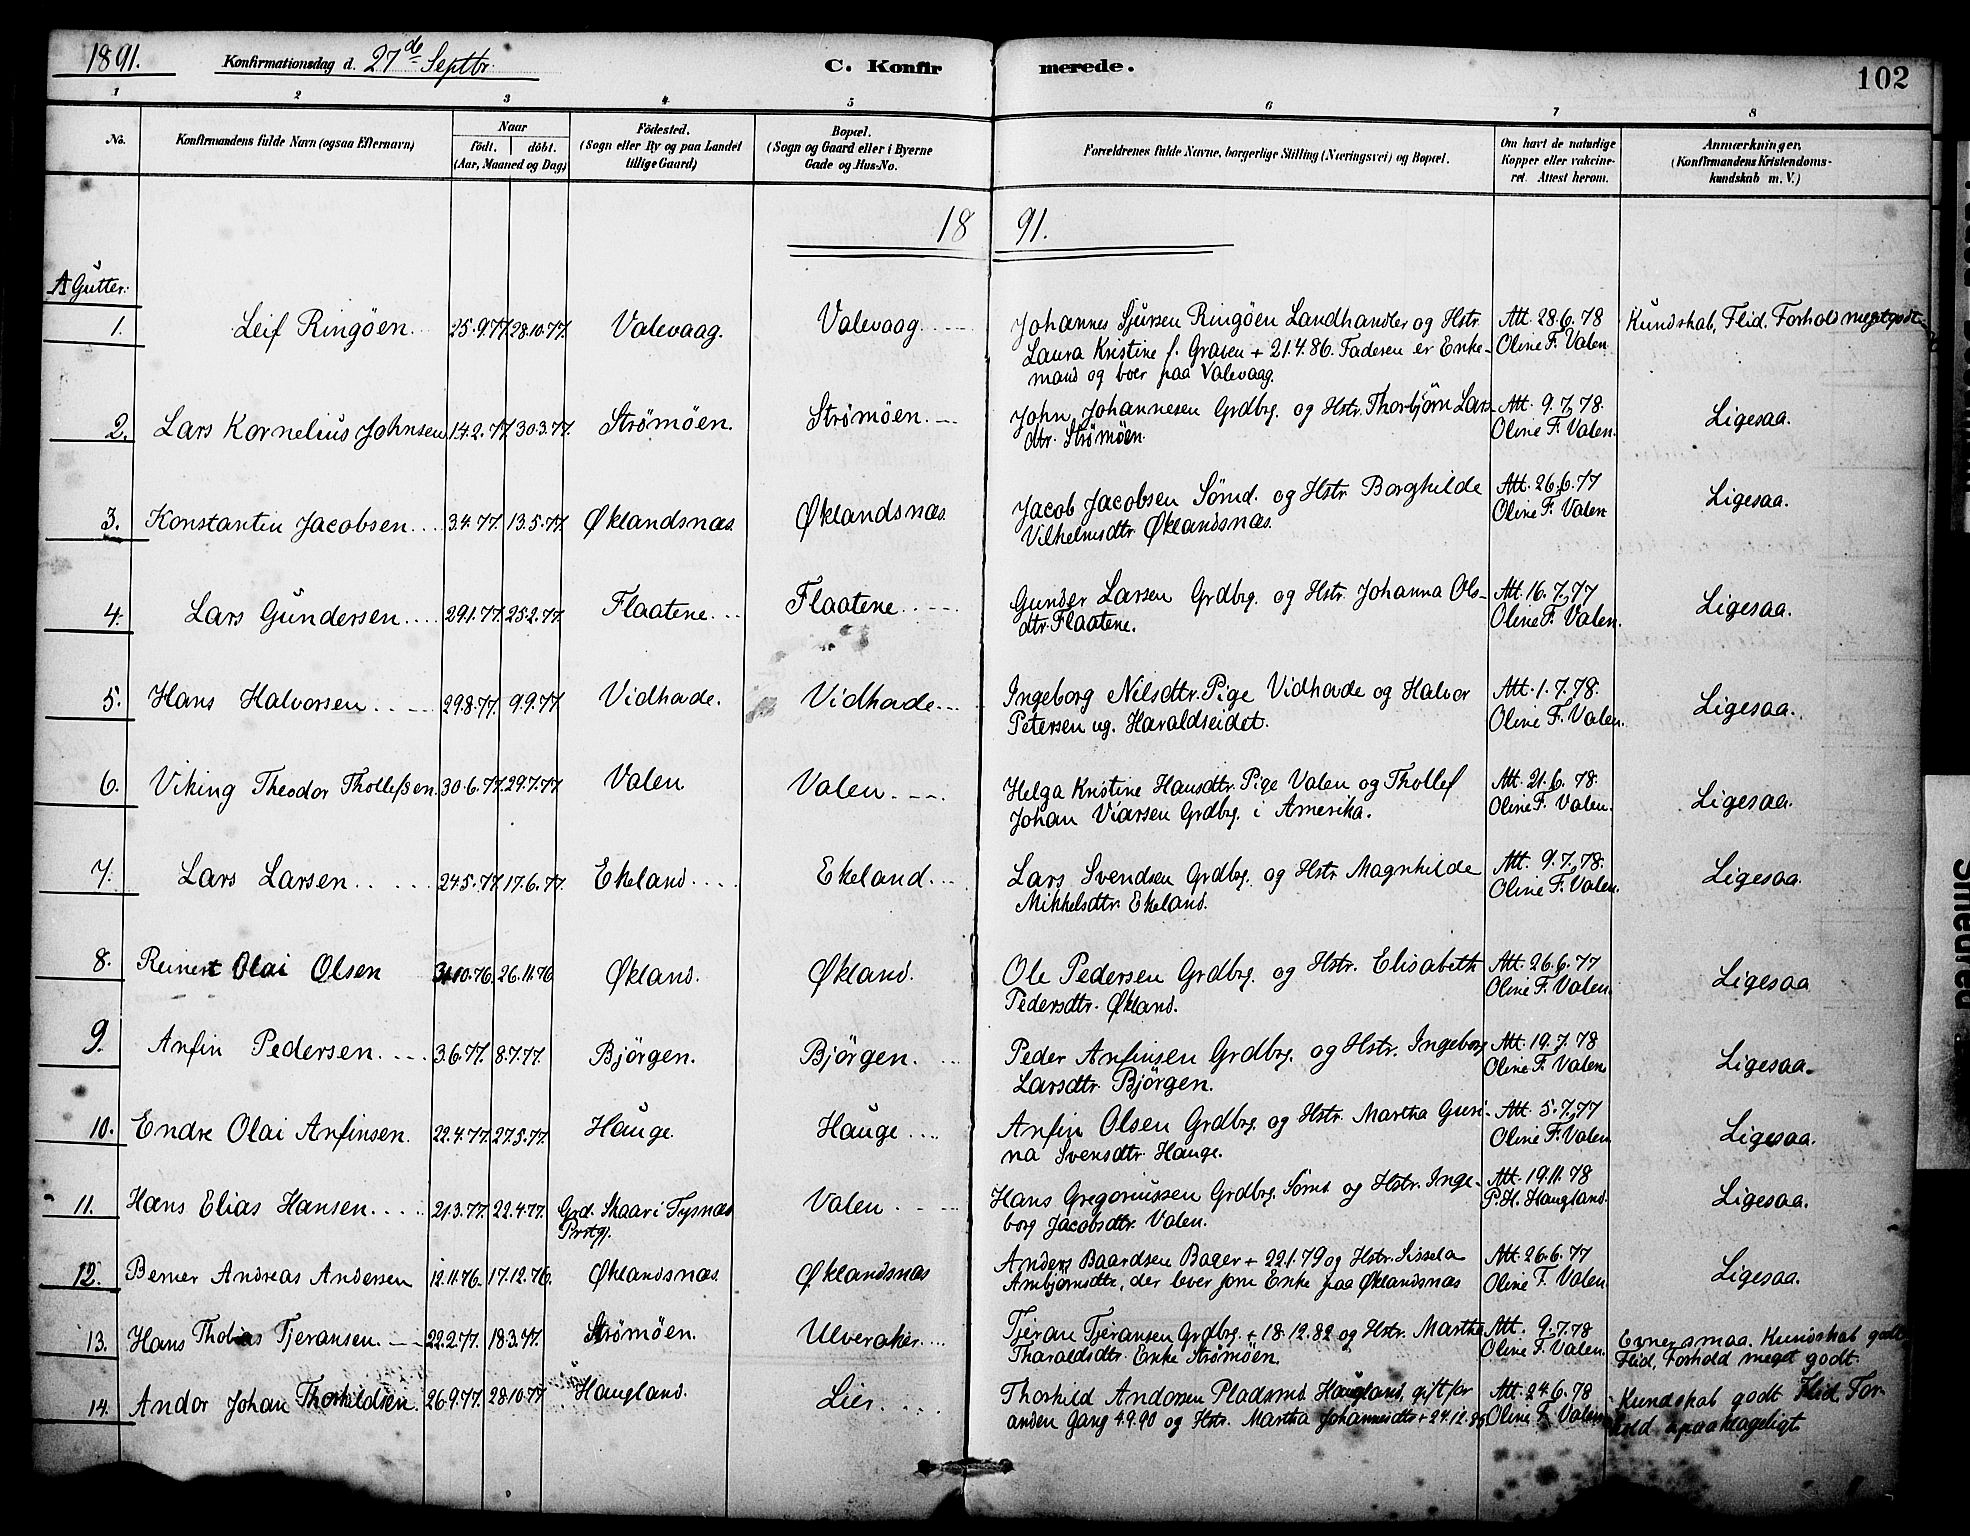 1891. Konfirmationsdag d. 27de Septbr. C. Konfirmerede. 102
1 2 3 4 5 6 7 8
No. Konfirmandens fulde Navn (ogsaa Efternavn) Naar født. døbt. (Aar, Maaned og Dag) Födested. (Sogn eller By og paa Landet tillige Gaard) Bopæl. (Sogn og Gaard eller i Byerne Gade og Hus-No. Forældrenes fulde Navne, borgerlige Stilling (Næringsvei) og Bopæl. Om havt de naturlige Kopper eller vakcineret. Attest herom. Anmærkninger. (Konfirmandens Kristendomskundskab m. V.)
1891.
A Gutter.
1. Leif Ringöen 25.9.77. 28.10.77. Valevaag. Valevaag. Johannes Sjursen Ringöen Landhandler og Hstr. Att. 28.6.78 Kundskab, Flid, Forhold meget godt
Laura Kristine f. Graven + 21.4.86. Faderen er Enke- Oline F. Valen
mand og boer paa Valevaag.
2. Lars Kornelius Johnsen 14.2.77 30.3.77. Strømöen. Strømöen. John Johannesen Grdbrg. og Hstr. Thorbjörn Lars- Att. 9.7.78. Ligesaa.
dtr. Strømöen. Oline F. Valen.
3. Konstantin Jacobsen 3.4.77. 13.5.77. Øklandsnæs. Øklandsnæs. Jacob Jacobsen Sömd. og Hstr. Borghilde Att. 26.6.77 Ligesaa.
Vilhelmsdtr Øklandsnæs. Oline F. Valen
4. Lars Gundersen 29.1.77. 25.2.77. Flaatene. Flaatene. Gunder Larsen Grdbrg. og Hstr. Johanna Ols- Att. 16.7.77 Ligesaa.
dtr. Flaatene. Oline F. Valen.
5. Hans Halvorsen 29.8.77. 9.9.77 Vidhovde. Vidhovde. Ingeborg Nilsdtr. Pige Vidhovde og Halvor Att. 1.7.78. Ligesaa.
Petersen ug. Haraldseidet. Oline F. Valen.
6. Viking Theodor Tholleſsen 30.6.77. 29.7.77 Valen Valen Helga Kristine Hansdtr. Pige Valen og Thollef Att. 21.6.78 Ligesaa.
Johan Viarsen Grdbrg. i Amerika. Oline F. Valen.
7. Lars Larsen 24.5.77. 17.6.77. Ekeland Ekeland Lars Svendsen Grdbrg. og Hstr. Magnhilde Att. 9.7.78. Ligesaa.
Mikkelsdtr. Ekeland. Oline F. Valen.
8. Reinert Olai Olsen 31.10.76. 26.11.76 Økland. Økland. Ole Pedersen Grdbrg. og Hstr. Elisabeth Att. 26.6.77 Ligesaa
Pedersdtr. Økland. Oline F. Valen.
9. Anfin Pedersen 3.6.77. 8.7.77. Bjørgen. Bjørgen. Peder Anfinsen Grdbrg. og Hstr. Ingeborg Att. 19.7.78 Ligesaa.
Larsdtr. Bjørgen. Oline F. Valen.
10. Endre Olai Anfinsen. 22.4.77. 27.5.77. Hauge. Hauge Anfin Olsen Grdbrg. og Hstr. Martha Guri- Att. 5.7.77 Ligesaa.
na Svensdtr. Hauge. Oline F. Valen.
11. Hans Elias Hansen 21.3.77. 22.4.77. Grd. Skaar i Tysnæs Prstgj. Valen Hans Gregoriussen Grdbrg. Sömd. og Hstr. Inge- Att. 19.11.78 Ligesaa.
borg Jacobsdtr. Valen. P. H. Haugland.
12. Berner Andreas Andersen 12.11.76. 17.12.76. Øklandsnæs. Øklandsnæs Anders Baardsen Bager + 22.1.79 og Hstr. Sissela Att. 26.6.77 Ligesaa.
Arnbjørnsdtr., der lever som Enke paa Øklandsnæs Oline F. Valen
13. Hans Thobias Tjeransen 22.2.77. 18.3.77. Strømöen. Ulveraker Tjeran Tjeransen Grdbrg. + 18.12.82 og Hstr. Martha Att. 9.7.78 Evner smaa. Kundskab godt
Tharaldsdtr. Enke Strømöen. Oline F. Valen. Flid, Forhold meget godt.
14. Andor Johan Thorkildsen. 26.9.77. 28.10.77 Haugland. Lier. Thorkild Andorsen Pladsmd. Haugland, gift for Att. 24.6.78 Kundskab godt Flid, For-
anden Gang 4.9.90 og Hstr. Martha Johannesdtr + 24.12.85 Oline F. Valen hold upaaklageligt